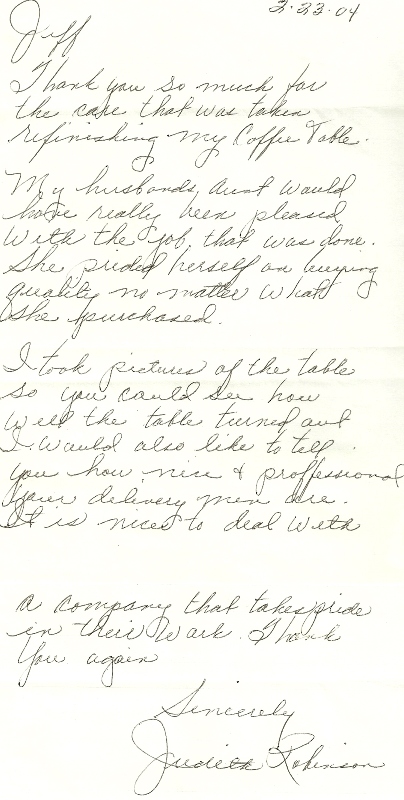 2-23-04
Jeff
Thank you so much for
the care that was taken
refinishing my Coffee Table.
My husbands, aunt would
have really been pleased
with the job, that was done.
She prided herself on buying
quality no matter what
she purchased.
I took pictures of the table
so you could see how
well the table turned out
I would also like to tell
you how nice & proffessional
your delivery men are.
It is nice to deal with
a company that takes pride
in their work. Thank
You again
Sincerely
Judith Robinson